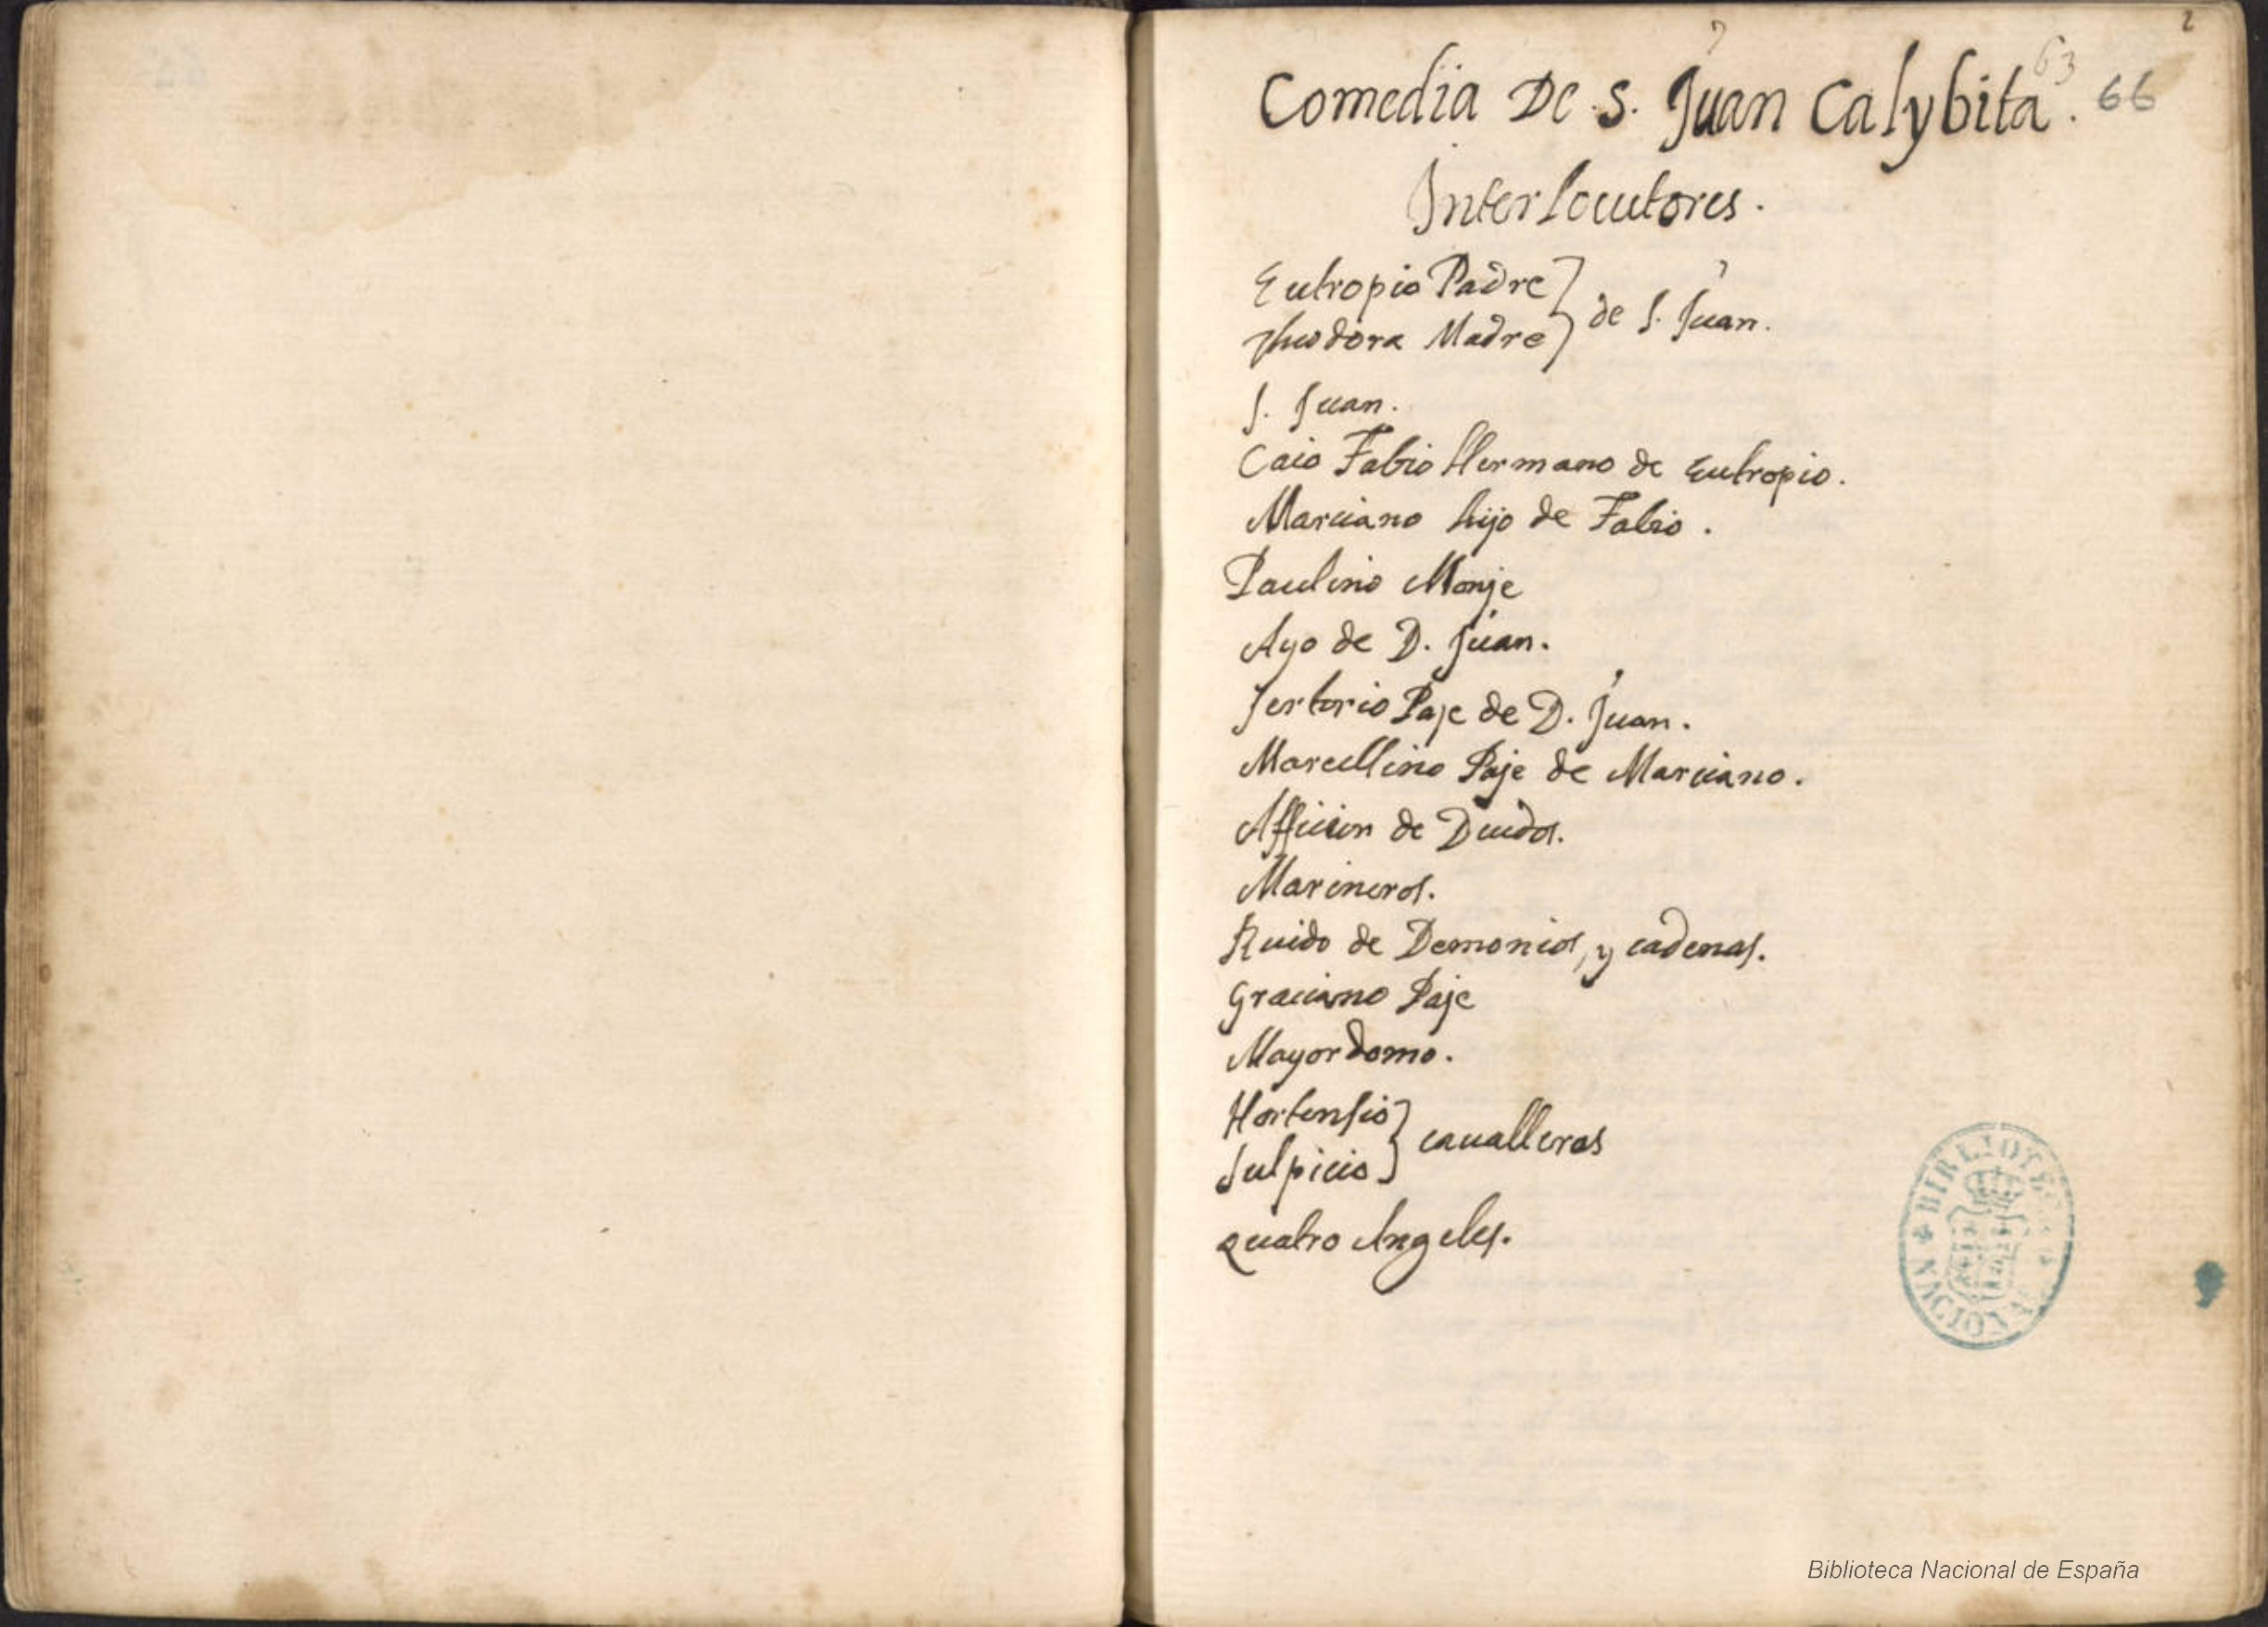 2
63
Comedia De S. Juan Calybita. 66
Interlocutores.
Eutropio Padre
Theodora Madre
de S. Juan.
S. Juan.
Caio Fabio Hermano de Eutropio.
Marciano hijo de Fabio.
Paulino Monje
Ayo de D. Juan.
Sertorio Paje de D. Juan.
Marcellino Paje de Marciano.
Afficion de Deudos.
Marineros.
Ruido de Demonios, y cadenas.
Graciano Paje
Mayordomo.
Hortensio
Sulpicio
caualleros
Quatro Angeles.
BIBLIOTECA NACIONAL
Biblioteca Nacional de España